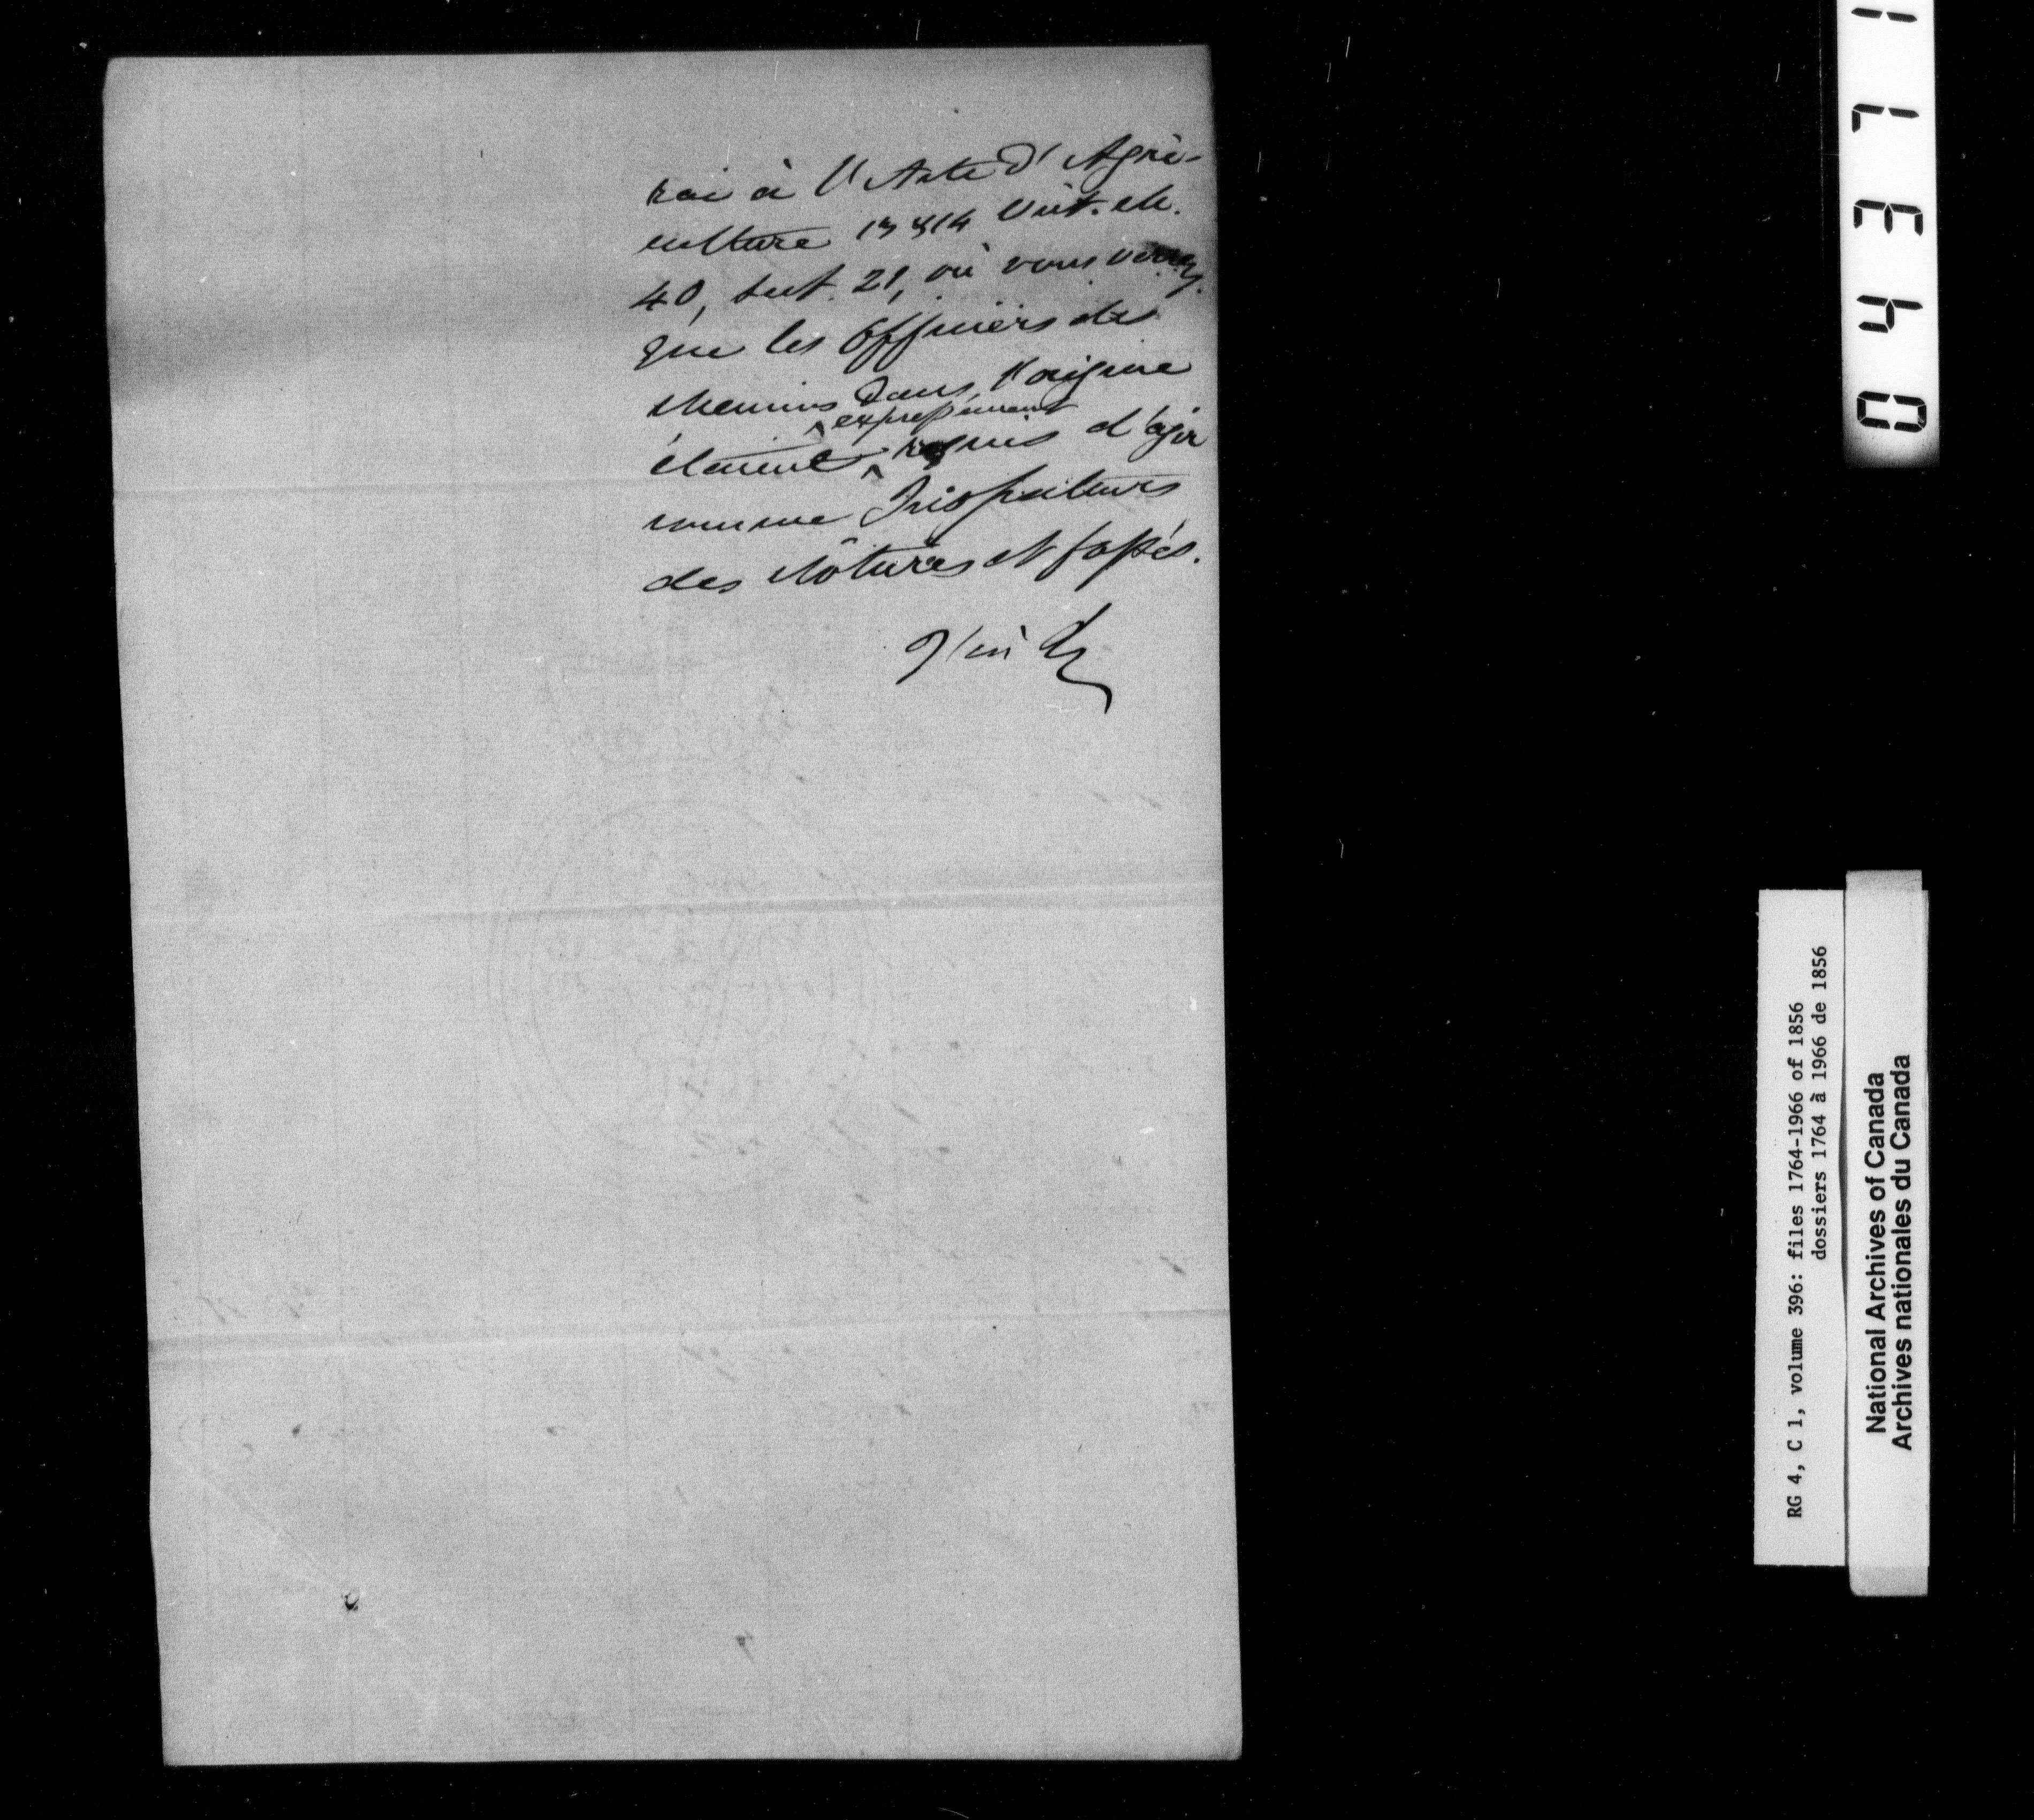 rai à l'Acte d'Agri-
culture 13 & 14 Vict. ch.
40, sect. 21, où vous verrez
que les Officiers des
chemins dans l'origine
étaient expressément requis d'agir
comme Inspecteurs
des clôtures et fossés.
0437 1
RG 4, C 1, volume 396: files 1764-1966 of 1856
dossiers 1764 à 1966 de 1856
National Archives of Canada
Archives nationales du Canada